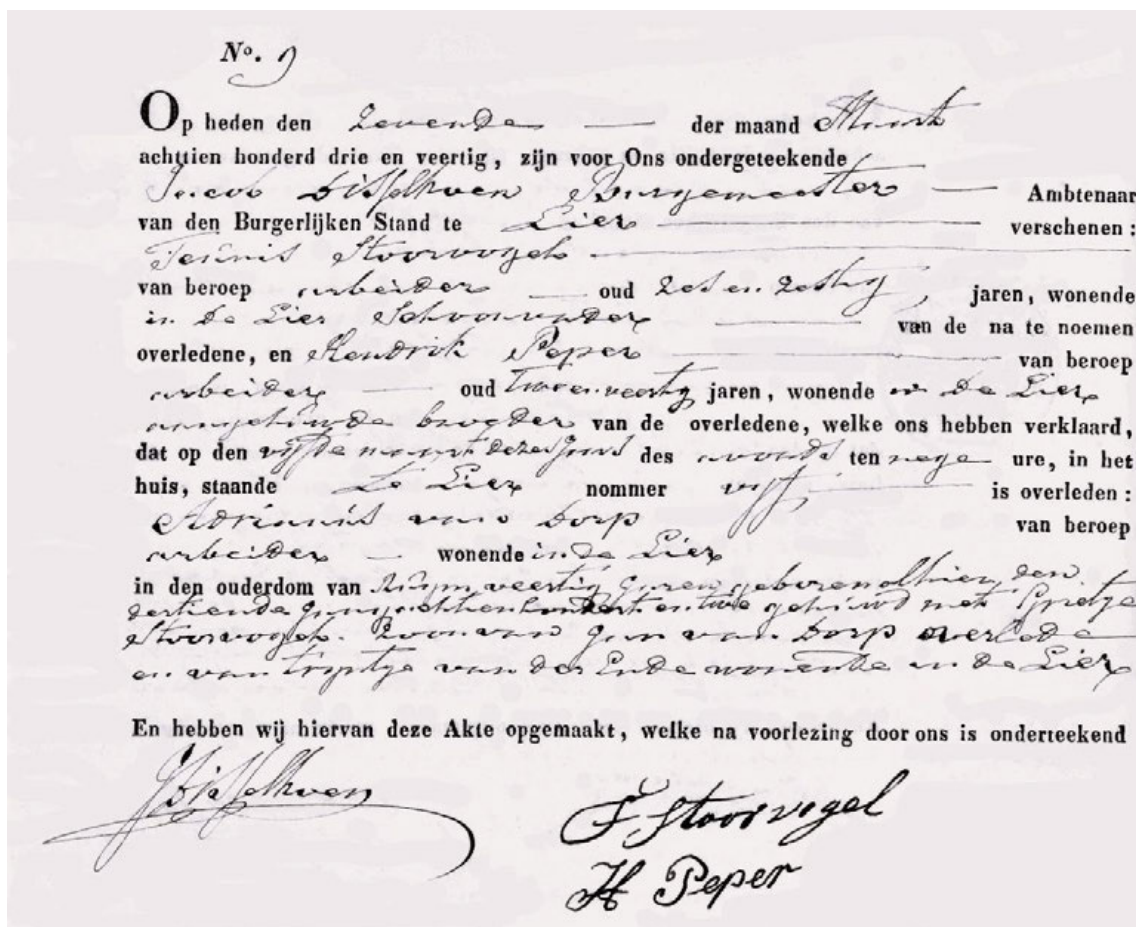 Nº. 9
Op heden den zevende der maand Maart
achttien honderd drie en veertig, zijn voor Ons ondergeteekende
Jacob Disselkoen Burgemeester Ambtenaar
van den Burgerlijken Stand te Lier verschenen:
Teunis Stoorvogel
van beroep arbeider oud zes en zestig, jaren, wonende
in de Lier Schoonvader van de na te noemen
overledene, en Hendrik Peper van beroep
arbeider oud twee en veertig jaren, wonende in de Lier
aangehuwde broeder van de overledene, welke ons hebben verklaard,
dat op den vijfde maart dezes Jaars des avonds ten nege ure, in het
huis, staande de Lier nommer vijf is overleden:
Adrianus van Dorp van beroep
arbeider wonende in de Lier
in den ouderdom van Ruym veertig Jaren geboren alhier den
dertiende Juny achtien hondert en twe gehuwd met
Stoorvogel. Zoon van Jan van Dorp overlede
en van Tryntje van der Ende wonende in de Lier
En hebben wij hiervan deze Akte opgemaakt, welke na voorlezing door ons is onderteekend
JDisselkoen
T Stoorvogel
H Peper